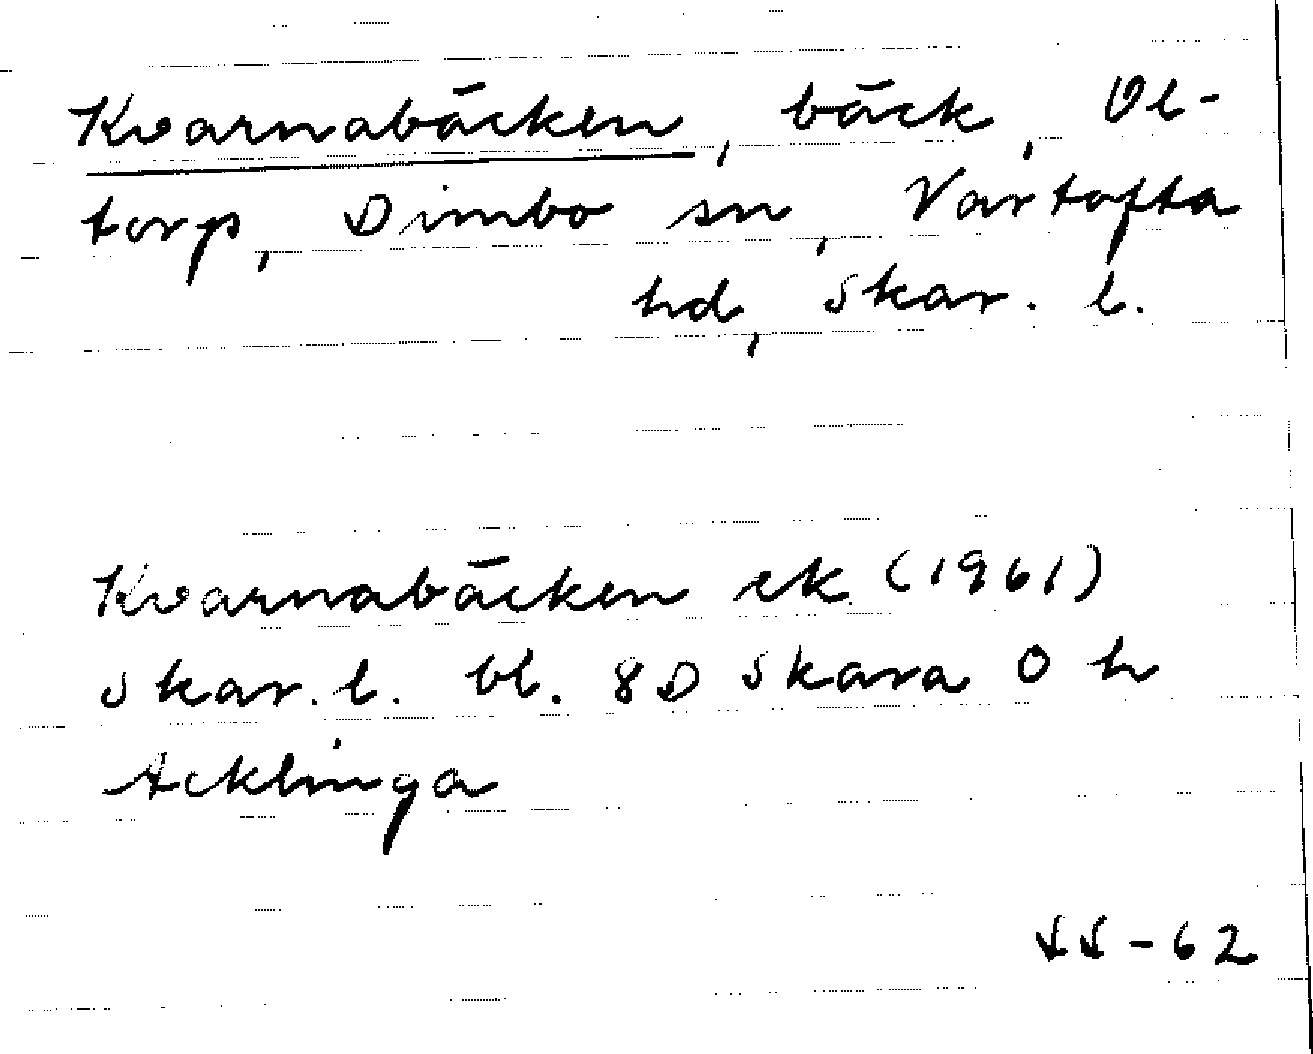 Kvarnabäcken, bäck, Ol-
torp, Dimbo sn, Vartofta
hd, Skar. l.
Kvarnabäcken ek (1961)
Skar. l. bl. 8D Skara 0 h
Acklinga
-62